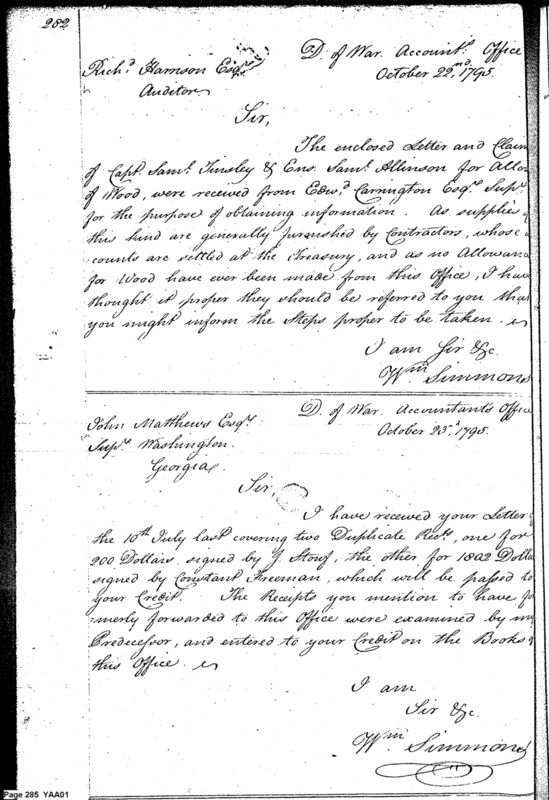 282
D. of War. Account.s Office
Rich.d Harrison Esq.r
October 22.nd 1795.
Auditor
Sir,
The enclosed Letter and Claim
of Capt. Sam.l Tinsley & Ens. Sam.l Allinson for Allow
of Wood, were received from Edw.d Carrington Esq.r Sup.r
for the purpose of obtaining information. As supplies
this kind are generally furnished by Contractors, whose
counts are settled at the Treasury, and as no Allowanc
for Wood have ever been made from this Office, I have
thought it proper they should be referred to you tha
you might inform the Steps proper to be taken.
I am Sir &c.
Wm Simmons
D. of War. Accountants Office
John Matthews Esq.r
October 23.d 1795.
Sup.r Washington.
Georgia
Sir,
I have received your Letter
the 10th July last covering two Duplicate Rec.ts, one for
200 Dollars signed by J. the other for 1802 Dolla
signed by Constant Freeman, which will be passed to
your Credit. The Receipts you mention to have fo
merly forwarded to this Office were examined by my
Predecessor, and entered to your Credit on the Books
this Office.
I am
Sir &c.
Wm Simmons
Page 285 YAA01